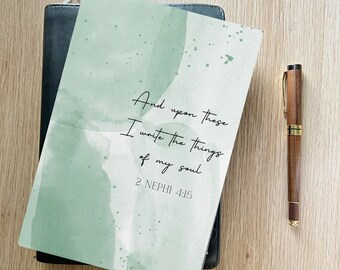 And upon these
I write the things
of my soul
2 NEPHI 4:15